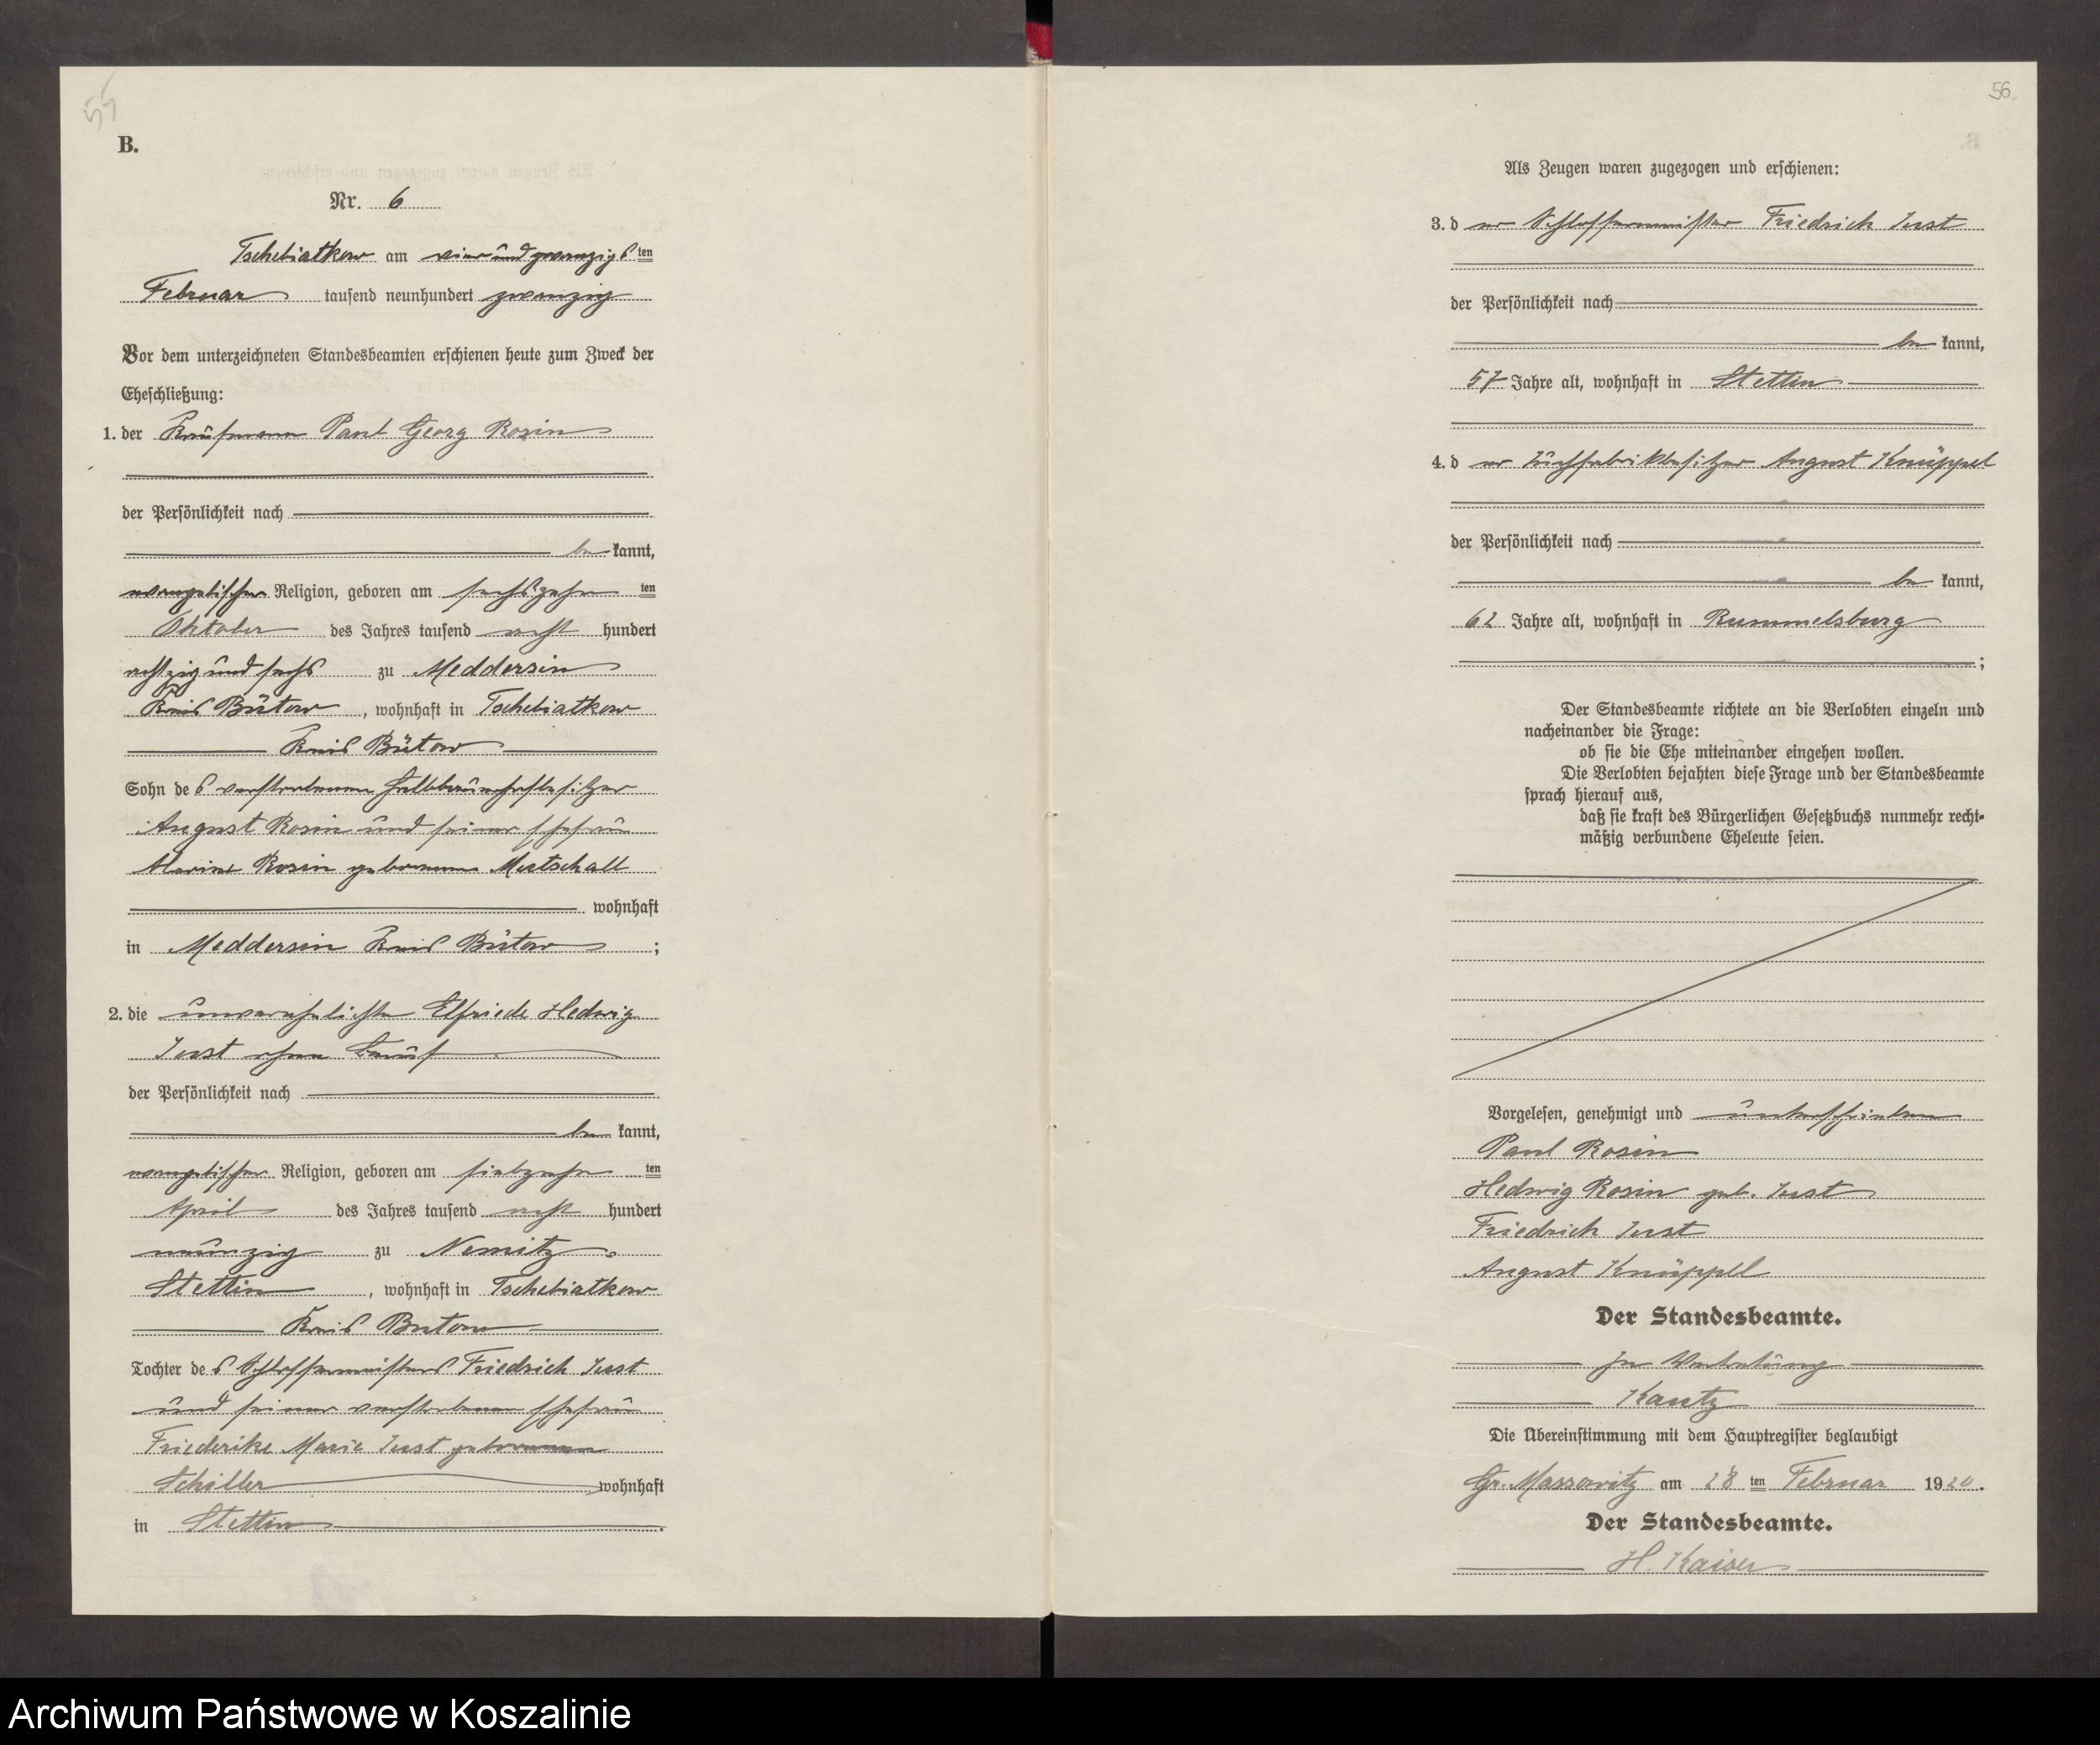 55
B.
Nr. 6
Tschebiatkow am vierundzwanzigsten
Februar tausend neunhundert zwanzig
Vor dem unterzeichneten Standesbeamten erschienen heute zum Zweck der
Eheschließung:
1. der Kaufmann Paul Georg Rosin
der Persönlichkeit nach
be kannt,
evangelischer Religion, geboren am sechszehn ten
Oktober des Jahres tausend acht hundert
achtzig und sechs zu Meddersin
Kreis Bütow, wohnhaft in Tschebiatkow
Kreis Bütow
Sohn des verstorbenen Halbbauerhofbesitzer
August Rosin und seiner Ehefrau
Rosin geborenen Mutschall
wohnhaft
in Meddersin Kreis Bütow;
2. die unverehelichte Elfriede Hedwig
Just ohne Beruf
der Persönlichkeit nach
be kannt,
evangelischer Religion, geboren am siebzehn ten
April des Jahres tausend acht hundert
neunzig zu Nemitz
Stettin, wohnhaft in Tschebiatkow
Kreis Butow
Tochter des Schlossermeisters Friedrich Just
und seiner verstorbenen Ehefrau
Friederike Marie Just geborenen
Schiller wohnhaft
in Stettin.
56.
Als Zeugen waren zugezogen und erschienen:
3. der Schlossermeister Friedrich Just
der Persönlichkeit nach
be kannt,
57 Jahre alt, wohnhaft in Stettin
4. der Tuchfabrikbesitzer August Knüppel
der Persönlichkeit nach
be kannt,
62 Jahre alt, wohnhaft in Rummelsburg
;
Der Standesbeamte richtete an die Verlobten einzeln und
nacheinander die Frage:
ob sie die Ehe miteinander eingehen wollen.
Die Verlobten bejahten diese Frage und der Standesbeamte
sprach hierauf aus,
daß sie kraft des Bürgerlichen Gesetzbuchs nunmehr recht-
mäßig verbundene Eheleute seien.
Vorgelesen, genehmigt und unterschrieben
Paul Rosin
Hedwig Rosin geb. Just
Friedrich Just
August Knüppel
Der Standesbeamte.
In Vertretung
Kautz
Die Übereinstimmung mit dem Hauptregister beglaubigt
Gr. Massowitz am 28 ten Februar 1920.
Der Standesbeamte.
H. Kaiser
Archiwum Państwowe w Koszalinie